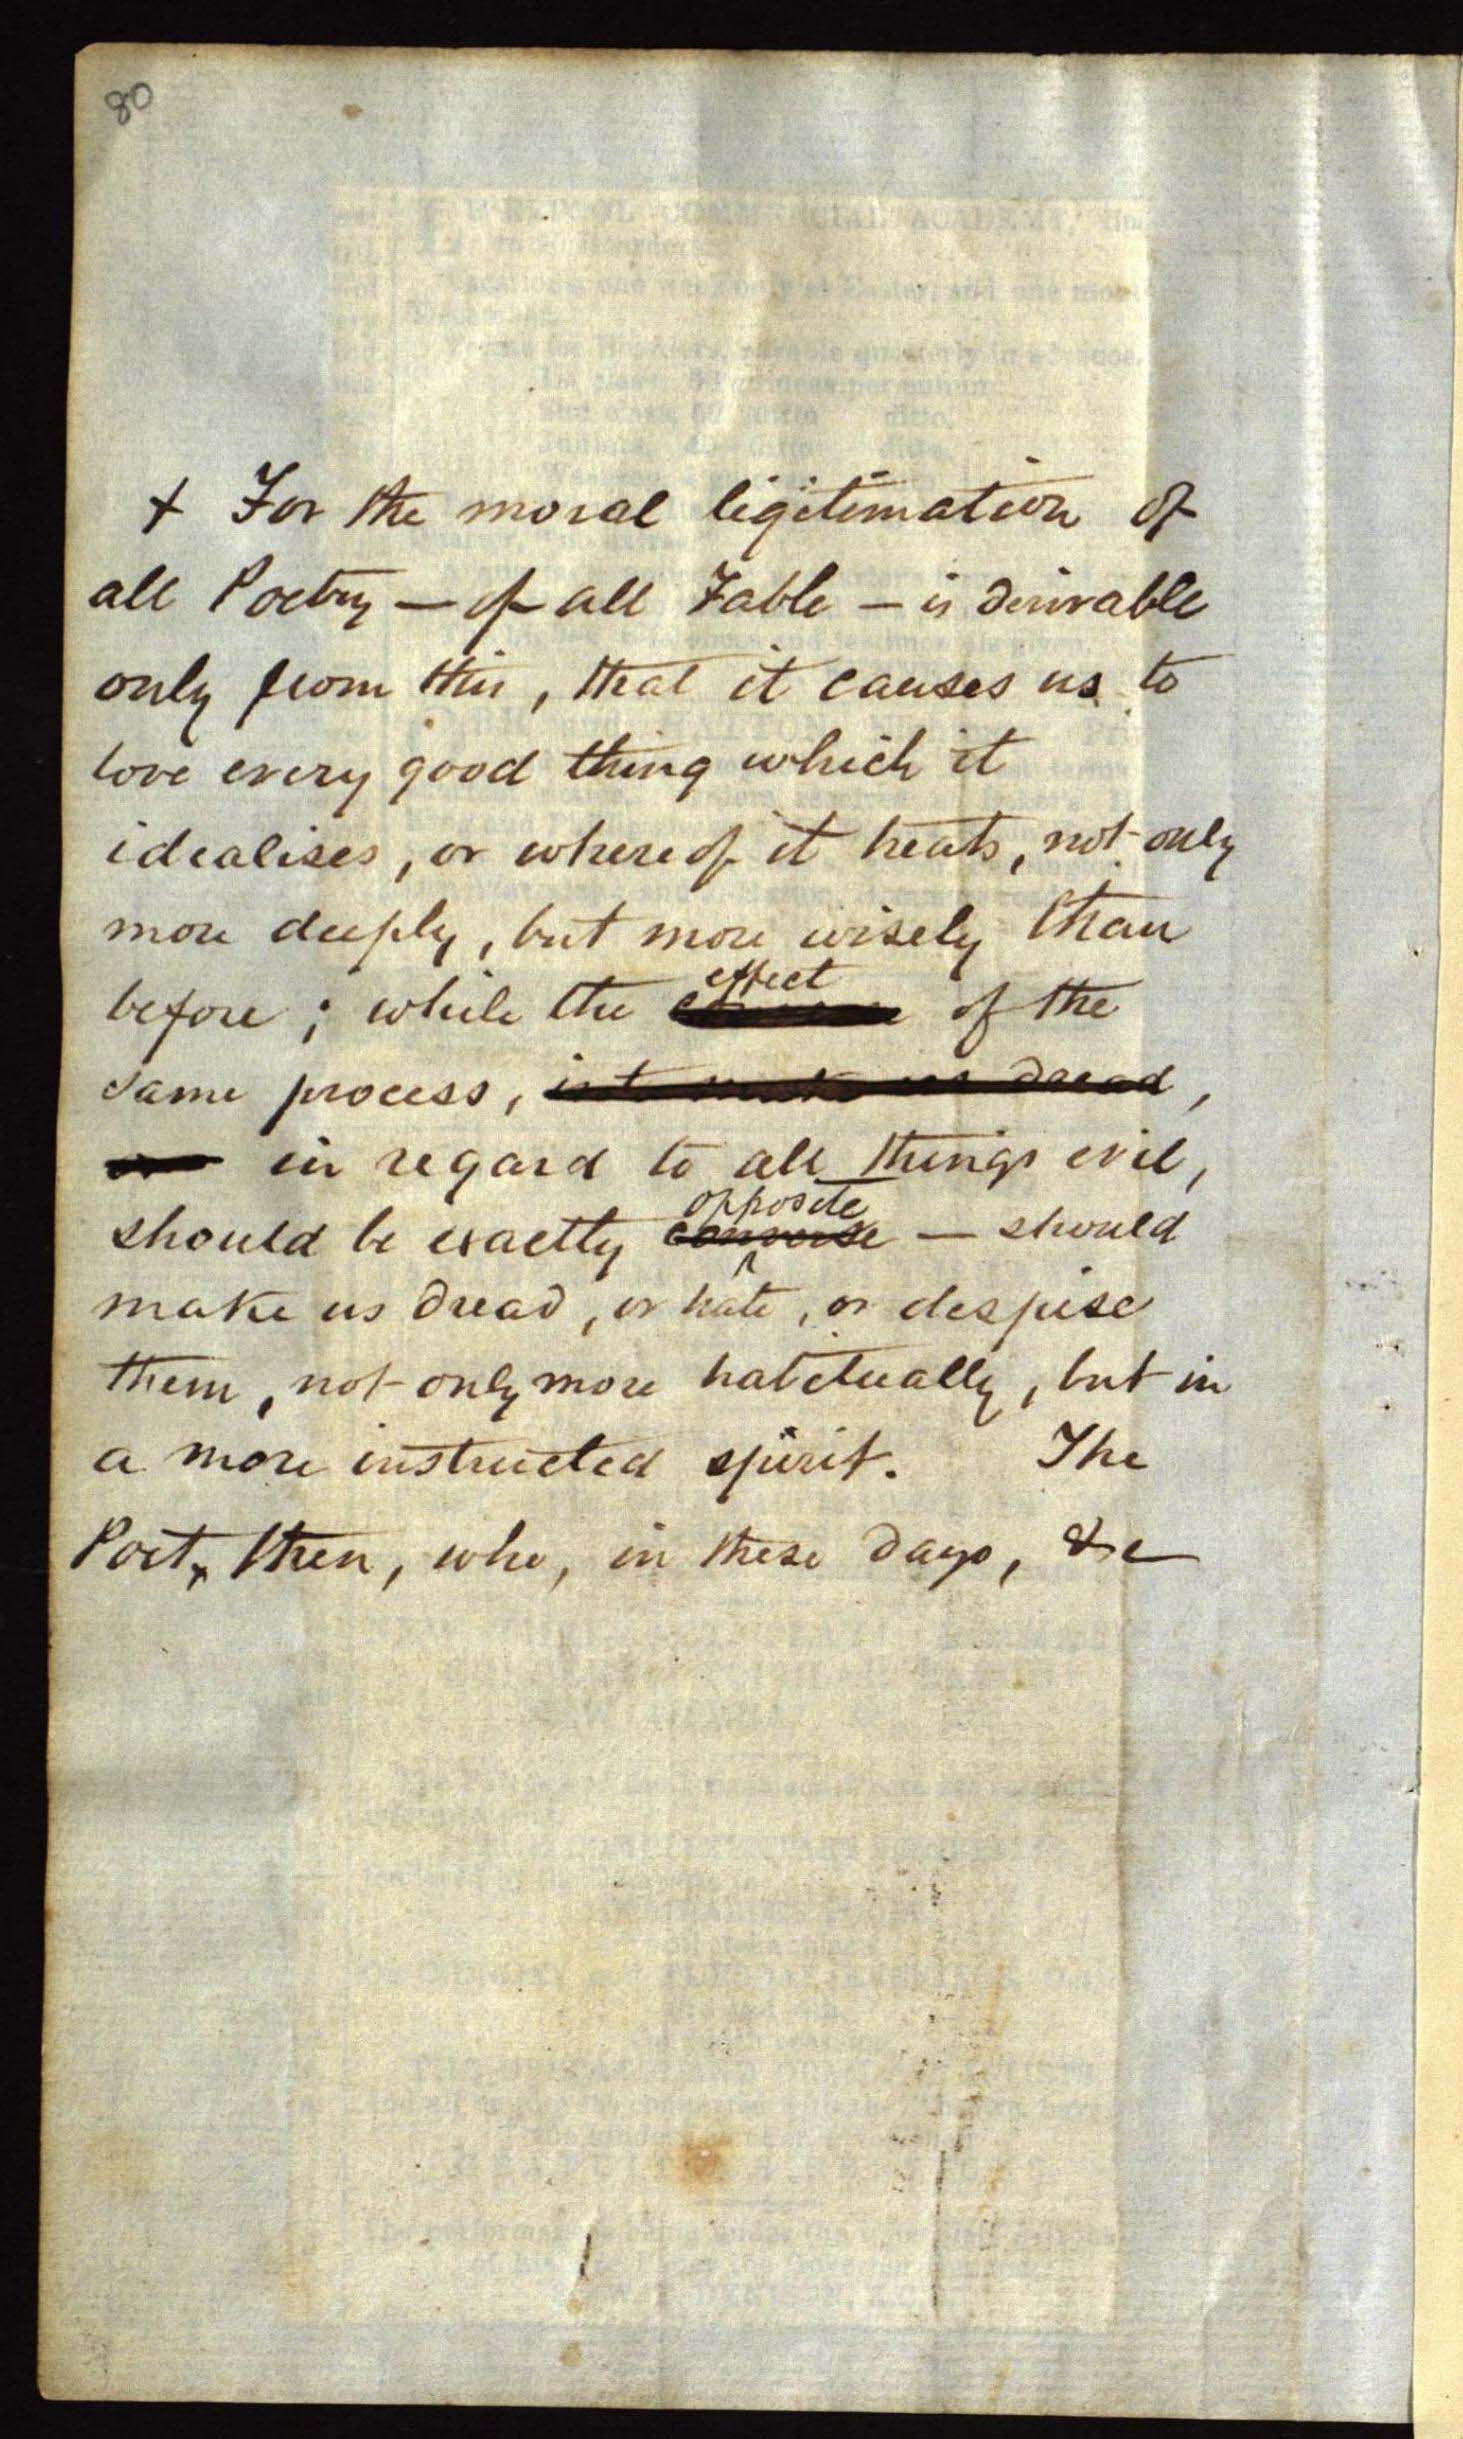 80
+ For the moral legitimation of
all Poetry — of all Fable — is derivable
only from this, that it causes us to
love every good thing which it
idealises, or whereof it treats, not only
more deeply, but more wisely than
before; while the effect of the
same process, is to make us dread,
in regard to all things evil,
should be exactly converse opposite — should
make us dread, or hate, or despise
them, not only more habitually, but in
a more instructed spirit. The
Poet, then, who, in these days, &c